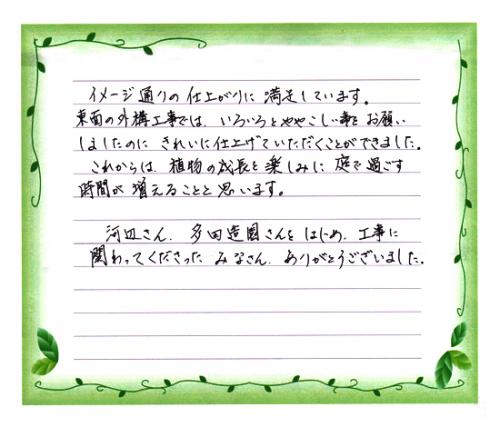 イメージ通りの仕上がりに満足しています。
東面の外構工事では、いろいろとややこしい事をお願い
しましたのに きれいに仕上げていただくことができました。
これからは、植物の成長を楽しみに 庭で過ごす
時間が 増えることと思います。
河辺さん、多田造園さんをはじめ、工事に
関わってくださった みなさん、ありがとうございました。